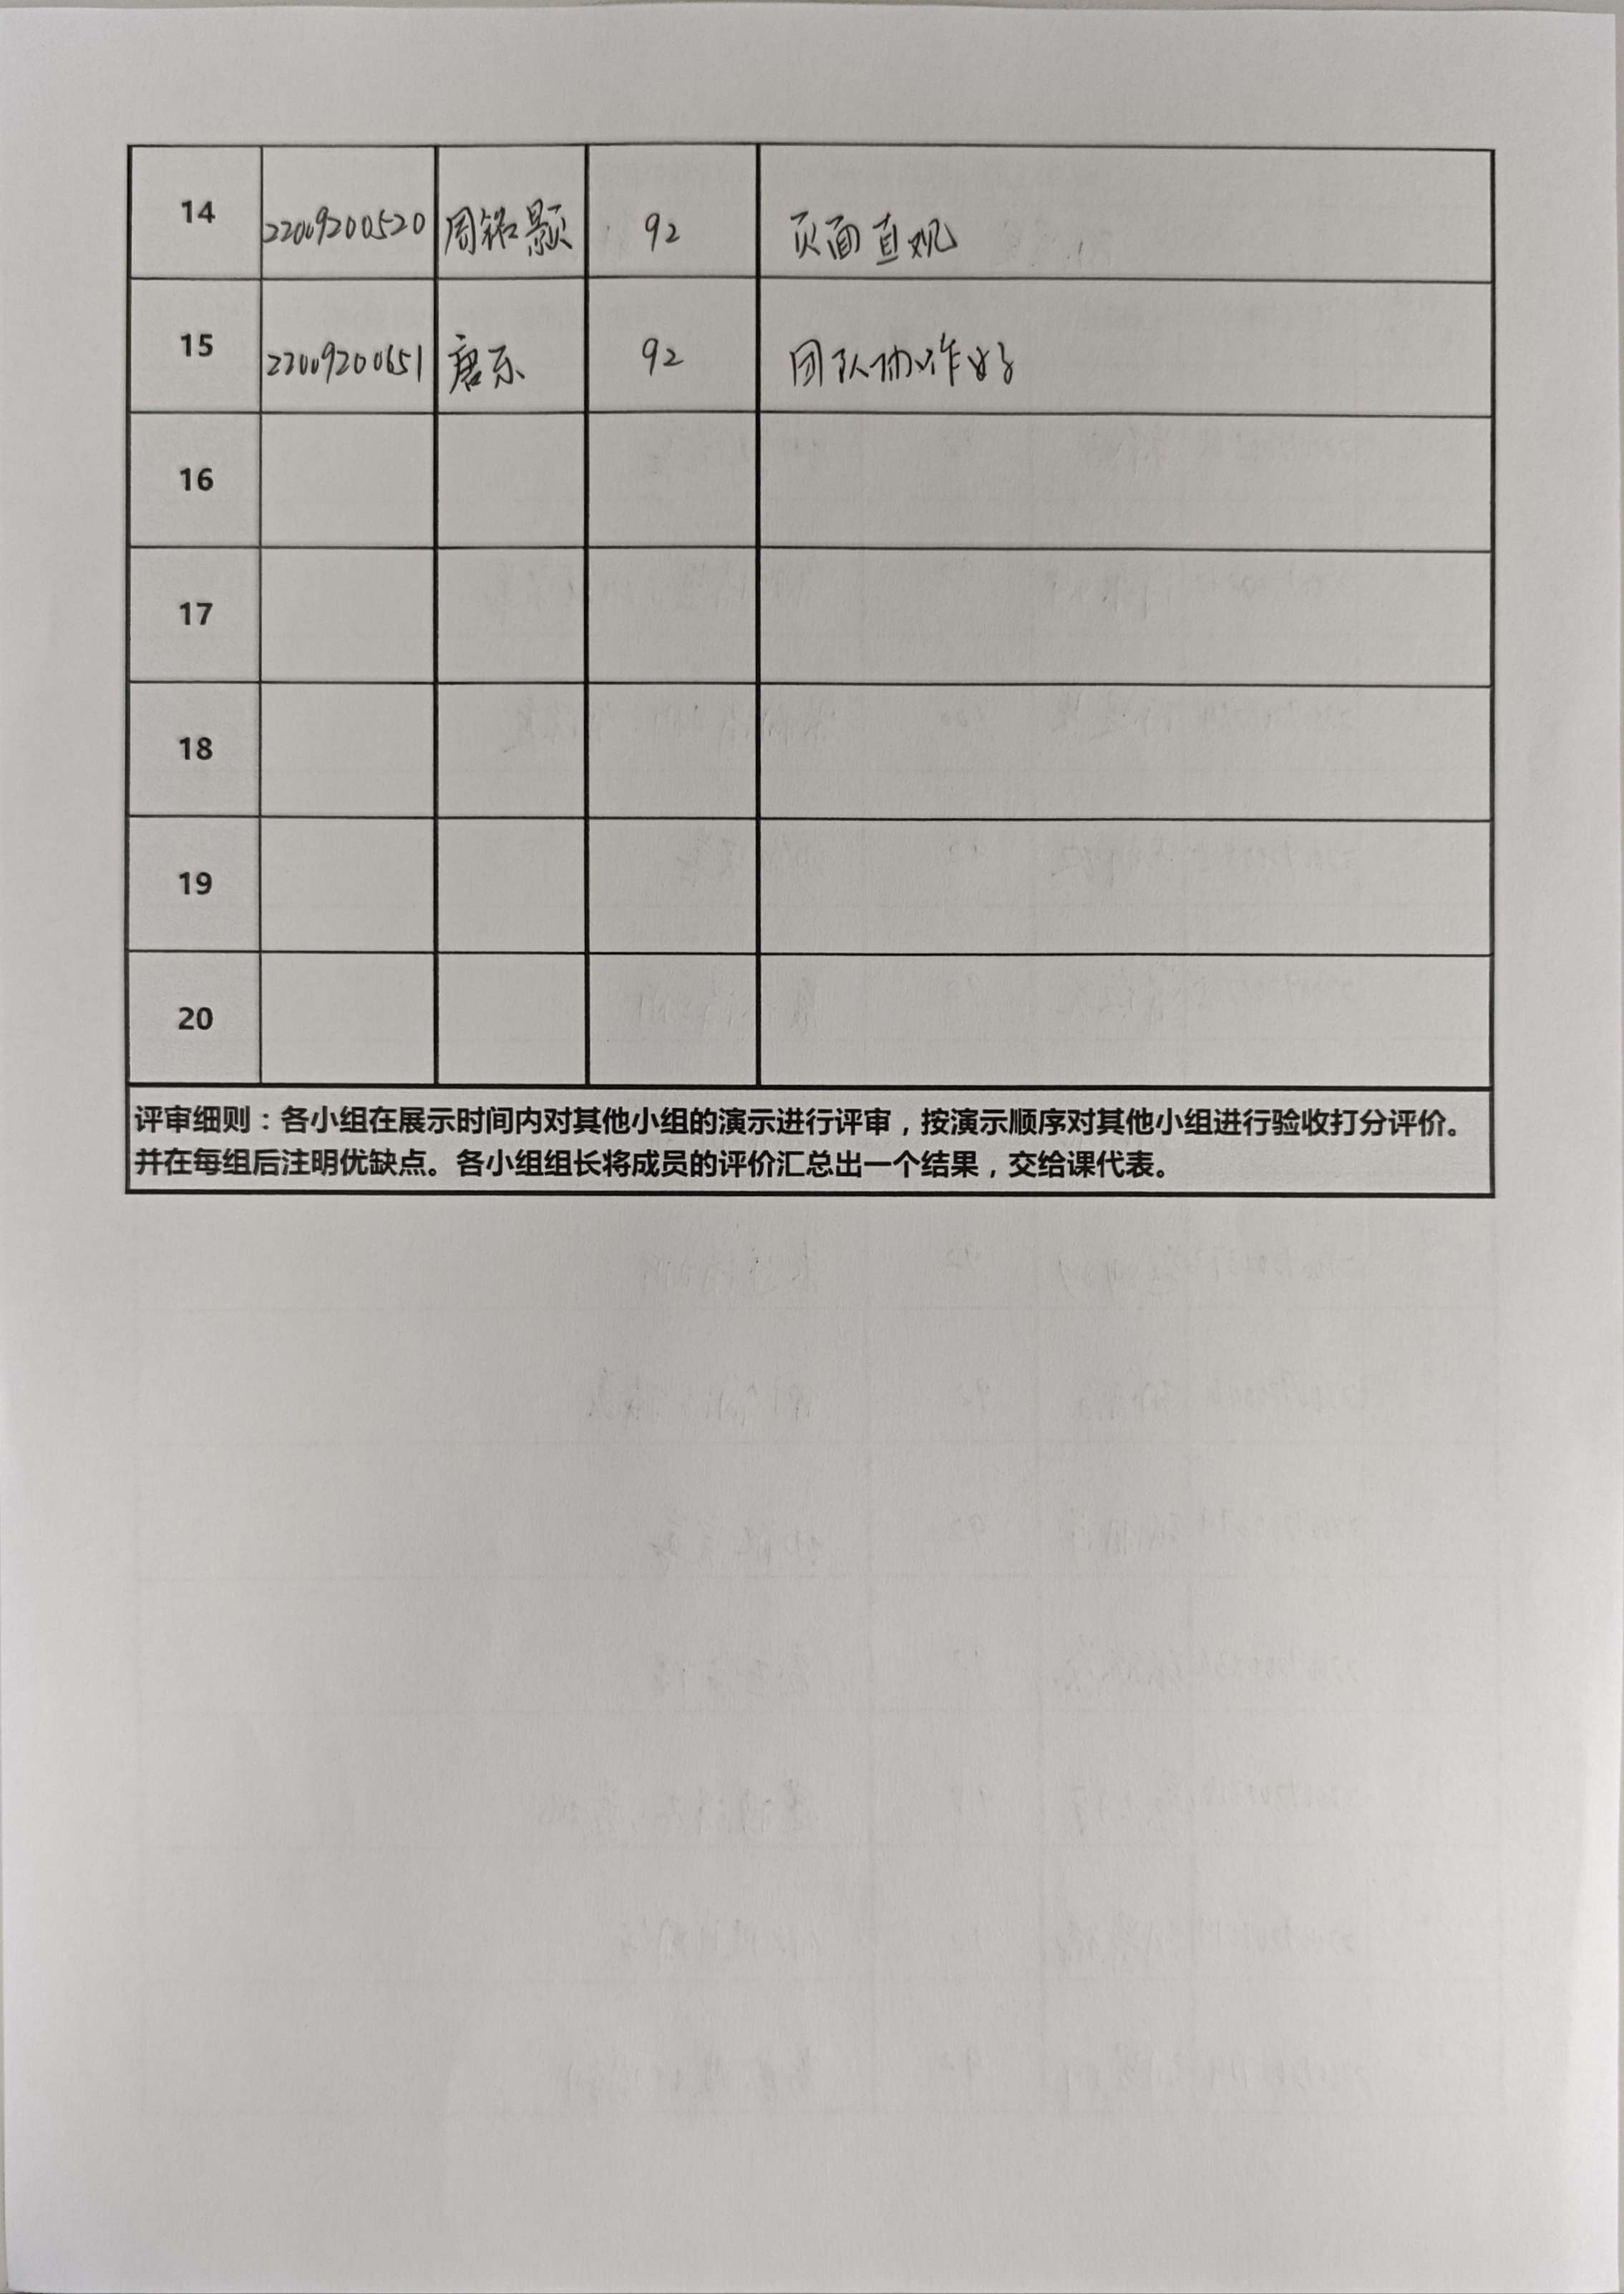 14 22009200520 周铭颢 92 页面直观
15 22009200651 唐乐 92 团队协作好
16
17
18
19
20
评审细则：各小组在展示时间内对其他小组的演示进行评审，按演示顺序对其他小组进行验收打分评价。
并在每组后注明优缺点。各小组组长将成员的评价汇总出一个结果，交给课代表。